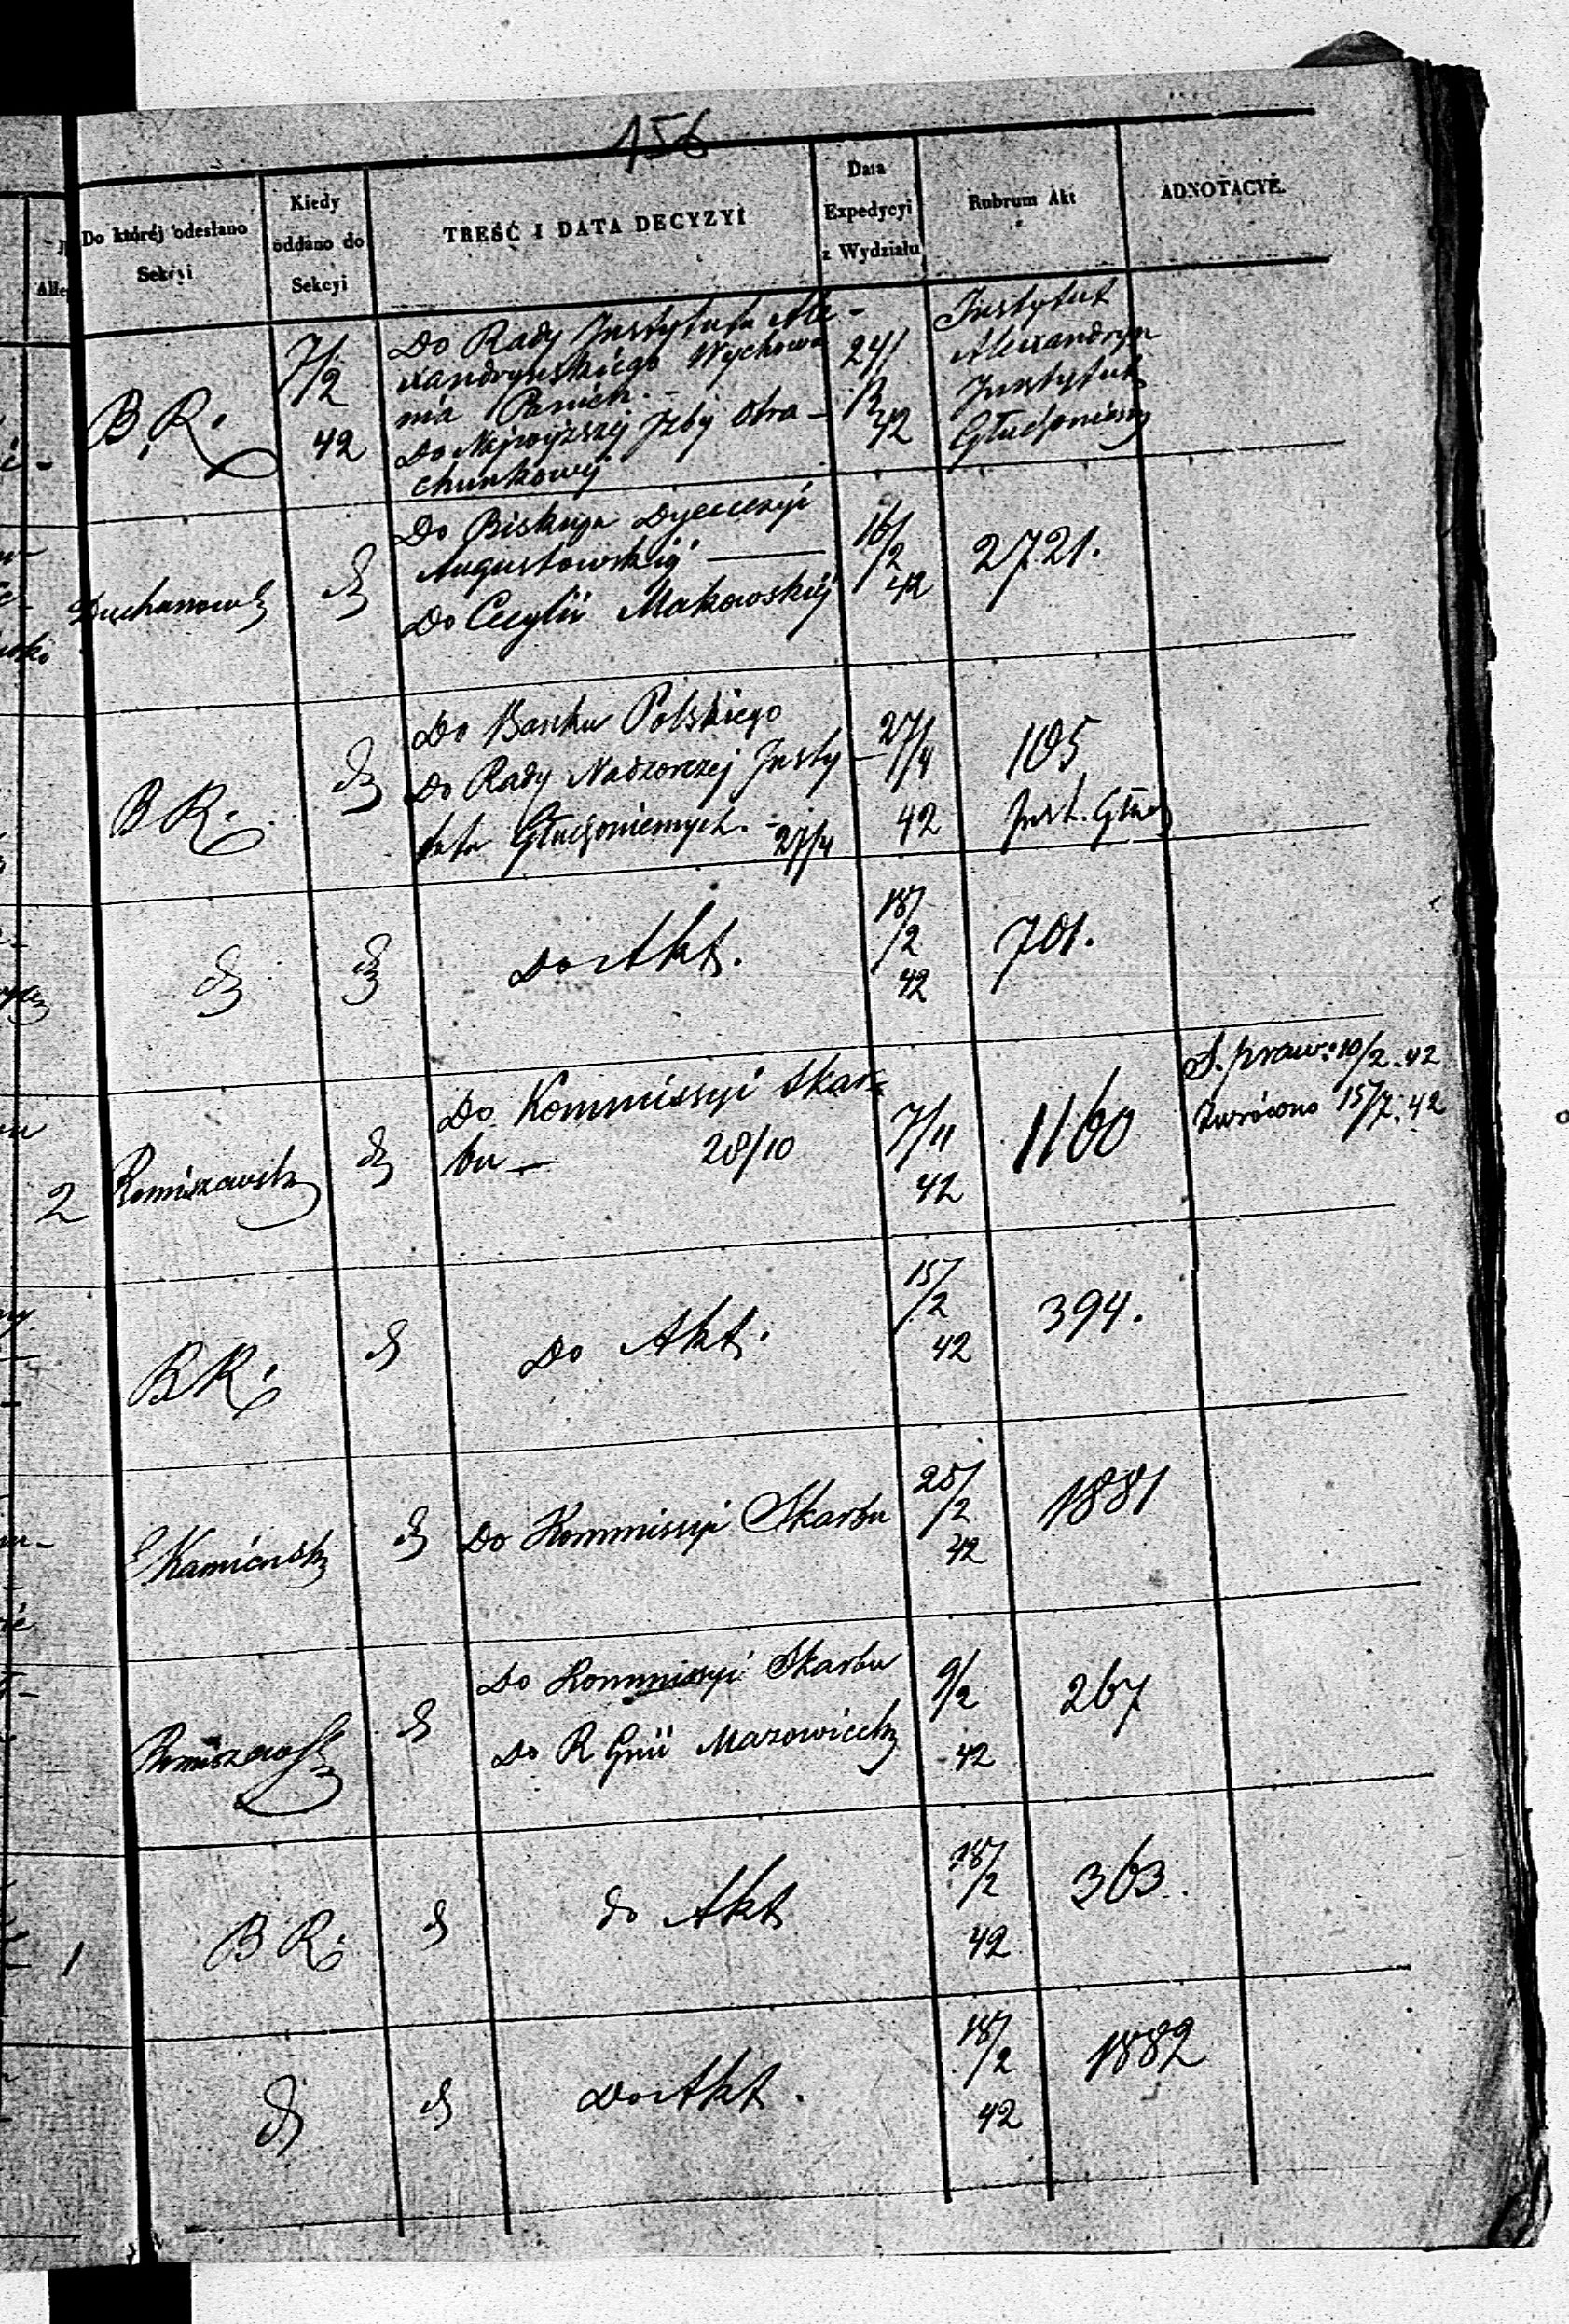 156
Do któréj odesłano Sekcyi
Kiedy oddano do Sekcyi
TREŚĆ I DATA DECYZYI
Data Expedycyi z Wydziału
Rubrum Akt
ADNOTACYE.
B.R.
7/2
42
Do Rady Instytutu Ale-
xandryńskiego Wychowa
nia Panien. -
Do Najwyższej Izby Obra-
chunkowej
24/
/2
42
Instytut
Alexandryn
Instytut
Głuchoniemy
Duchanows
d
Do Biskupa Dyecezyi
Augustowskiéj
Do Cecylii Makowskiéj
16/
/2
42
2721.
B R.
d
Do Banku Polskiego
Do Rady Nadzorczej Insty-
tutu Głuchoniemych. -
27/4
27/4
42
105
Inst. Głuch
d
d
Do Akt.
18/
/2
42
701.
2
Romiszewsk
d
Do Kommissyi Skar-
bu — 28/10
7/11
42
1160
S. praw: 10/2. 42
Zwrócono 15/7. 42
B R.
d
Do Akt.
15/
/2
42
394.
Kamińsk
d
Do Kommissyi Skarbu
25/
/2
42
1881
Romiszewsk
d
Do Kommissyi Skarbu
Do R Gnii Mazowieck
9/2
42
267
1
B R.
d
do Akt
18/
/2
42
363.
d
d
Do Akt.
18/
/2
42
1882